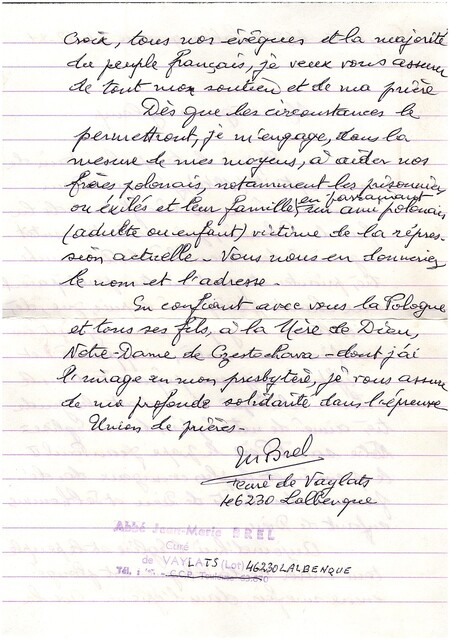 Croix, tous nos évêques et la majorité
du peuple français, je veux vous assurer
de tout mon soutien et de ma prière
Dès que les circonstances le
permettront, je m'engage, dans la
mesure de mes moyens, à aider nos
frères polonais, notamment les prisonniers
ou exilés et leur famille, en parrainant
un ami polonais
(adulte ou enfant) victime de la répres-
sion actuelle - Vous nous en donnerez
le nom et l'adresse -
En confiant avec vous la Pologne
et tous ses fils, à la Mère de Dieu,
Notre-Dame de Czestochova - dont j'ai
l'image en mon presbytère, je vous assure
de ma profonde solidarité dans l'épreuve
Union de prières -
JM Brel
curé de Vaylats
46230 Lalbenque
Abbé Jean-Marie BREL
Curé
de VAYLATS (Lot) 46230 LALBENQUE
Tél. : C.C.P. Toulouse